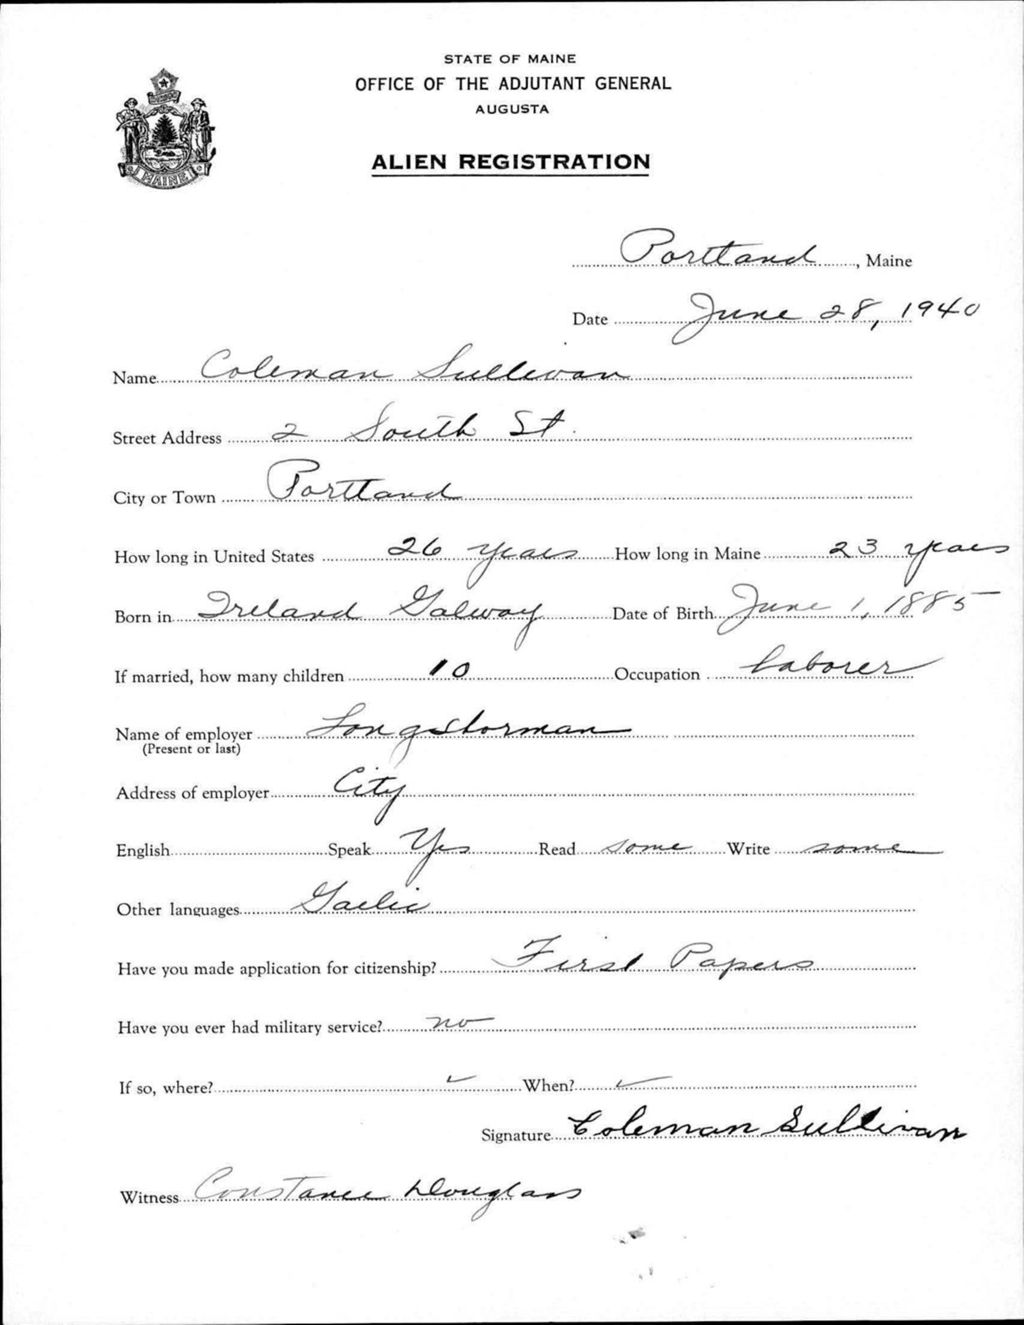 STATE OF MAINE
OFFICE OF THE ADJUTANT GENERAL
AUGUSTA
ALIEN REGISTRATION
MAINE
Portland, Maine
Date June 28, 1940
Name Coleman Sullivan
Street Address 2 South St.
City or Town Portland
How long in United States 26 years How long in Maine 23 years
Born in Ireland Galway Date of Birth June 1, 1885
If married, how many children 10 Occupation Laborer
Name of employer Longshorman
(Present or last)
Address of employer City
English Speak Yes Read some Write some
Other languages Gaelic
Have you made application for citizenship? First Papers
Have you ever had military service? no
If so, where? ✓ When? ✓
Signature Coleman Sullivan
Witness Constance Douglass